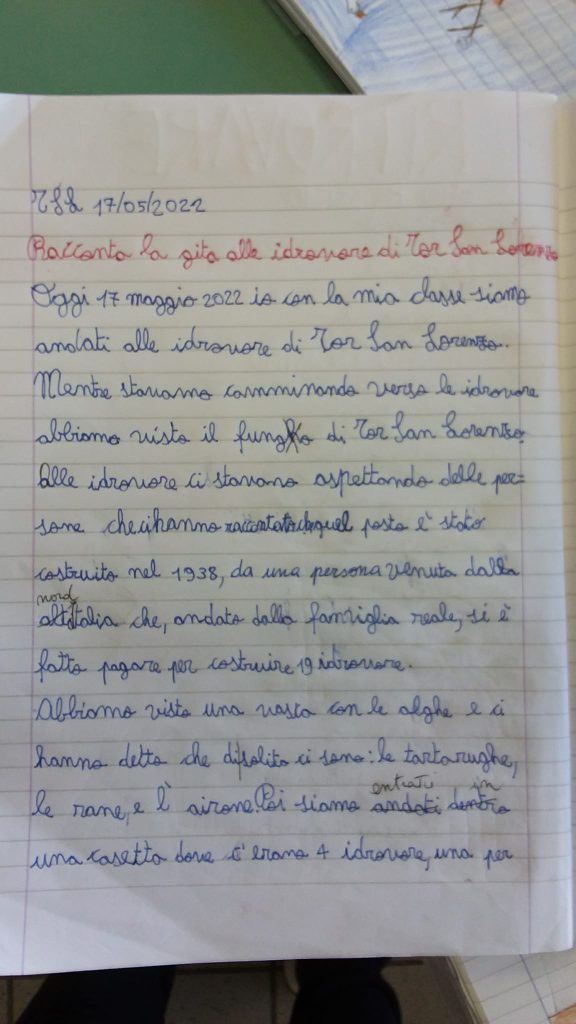 TSL 17/05/2022
Racconto la gita alle idrovore di Tor San Lorenzo
Oggi 17 maggio 2022 io con la mia classe siamo
andati alle idrovore di Tor San Lorenzo.
Mentre stavamo camminando verso le idrovore
abbiamo visto il fungo di Tor San Lorenzo.
Alle idrovore ci stavano aspettando delle per=
sone che ci hanno raccontato che quel posto è stato
costruito nel 1938, da una persona venuta dalla
nord
altitalia che, andato dalla famiglia reale, si è
fatto pagare per costruire 19 idrovore.
Abbiamo visto una vasca con le alghe e ci
hanno detto che di solito ci sono: le tartarughe,
entrati in
le rane, e l'airone. Poi siamo andati dentro
una casetta dove c'erano 4 idrovore, una per